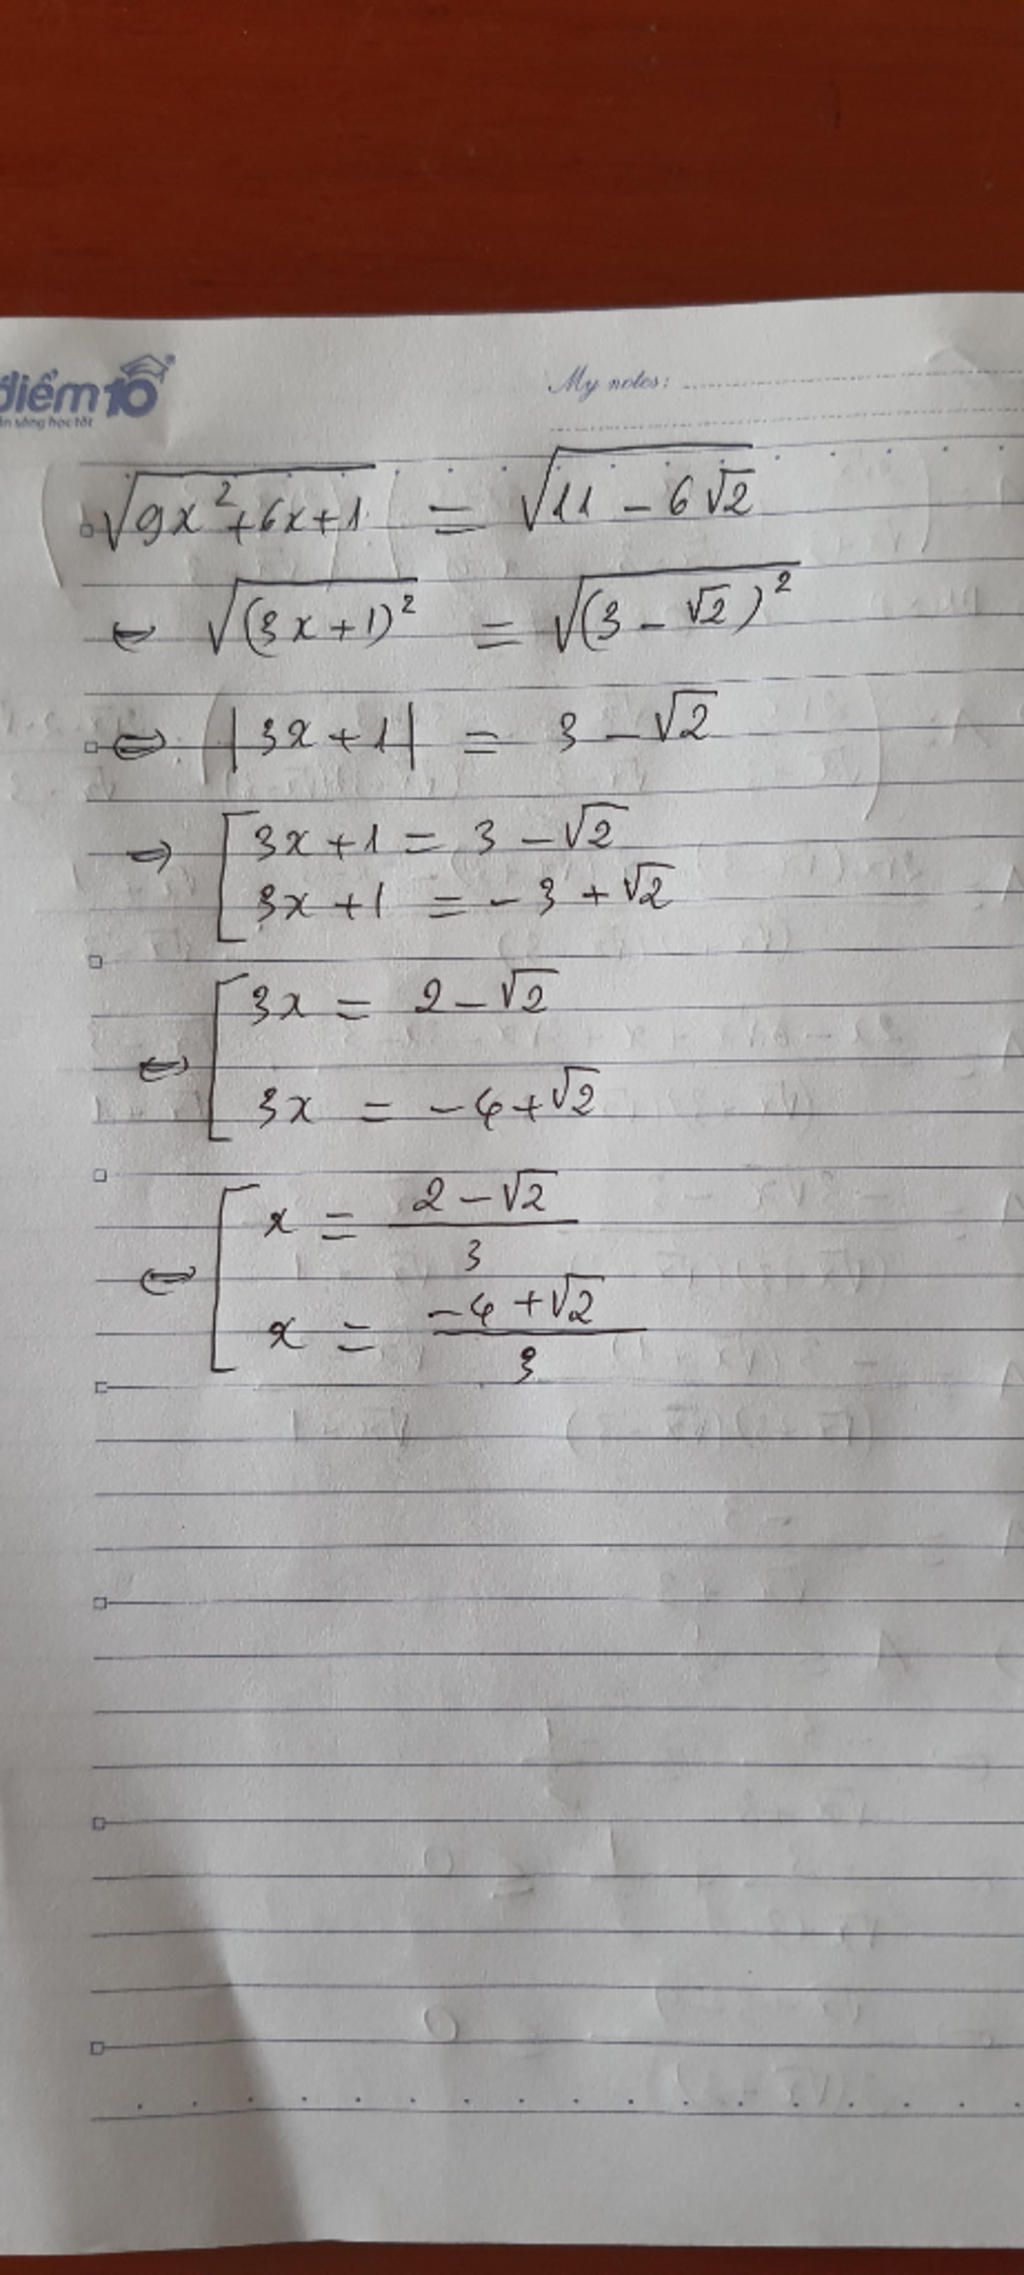 điểm10
My notes:
√(9x²+6x+1) = √(11 - 6√2)
⇔ √((3x+1)²) = √((3-√2)²)
⇔ |3x+1| = 3-√2
⇒ [ 3x+1 = 3-√2
3x+1 = -3+√2
⇔ [ 3x = 2-√2
3x = -4+√2
⇔ [ x = (2-√2)/3
x = (-4+√2)/3